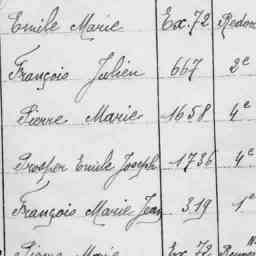 Emile Marie Ex. 72 Redon
François Julien 667 2e
Pierre Marie 1658 4e
Prosper Emile Joseph 1736 4e
François Marie Jean 319 1e
Pierre Marie Ex. 72